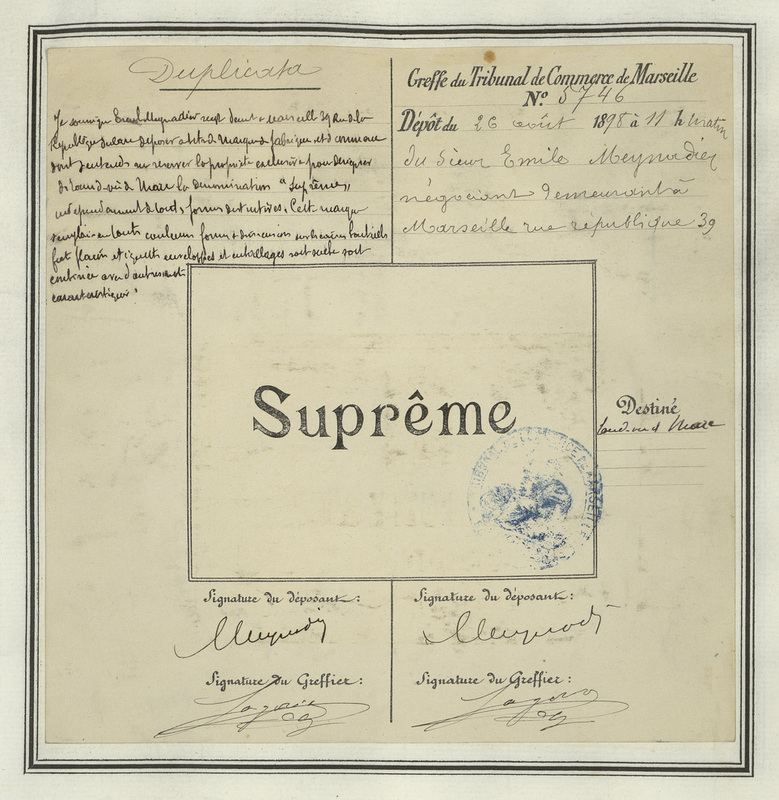 Duplicata
Je soussigné Emile Meynadier négt demt à Marseille 39 rue de la
République déclare déposer à titre de marque de fabrique et de commerce
dont j'entends me réserver la propriété exclusive pour désigner
la dénomination "Suprême"
indépendamment de toutes formes distinctives. Cette marque
s'emploie en toutes couleurs formes & dimensions sur les caisses bouteilles
enveloppes et emballages soit seule soit
combinée avec d'autres
caractéristiques.
Greffe du Tribunal de Commerce de Marseille
No. 5746
Dépôt du 26 août 1898 à 11 h matin
du Sieur Emile Meynadier
négociant demeurant à
Marseille rue république 39
Suprême
Destiné
Signature du déposant:
Meynadier
Signature du Greffier:
Signature du déposant:
Meynadier
Signature du Greffier: